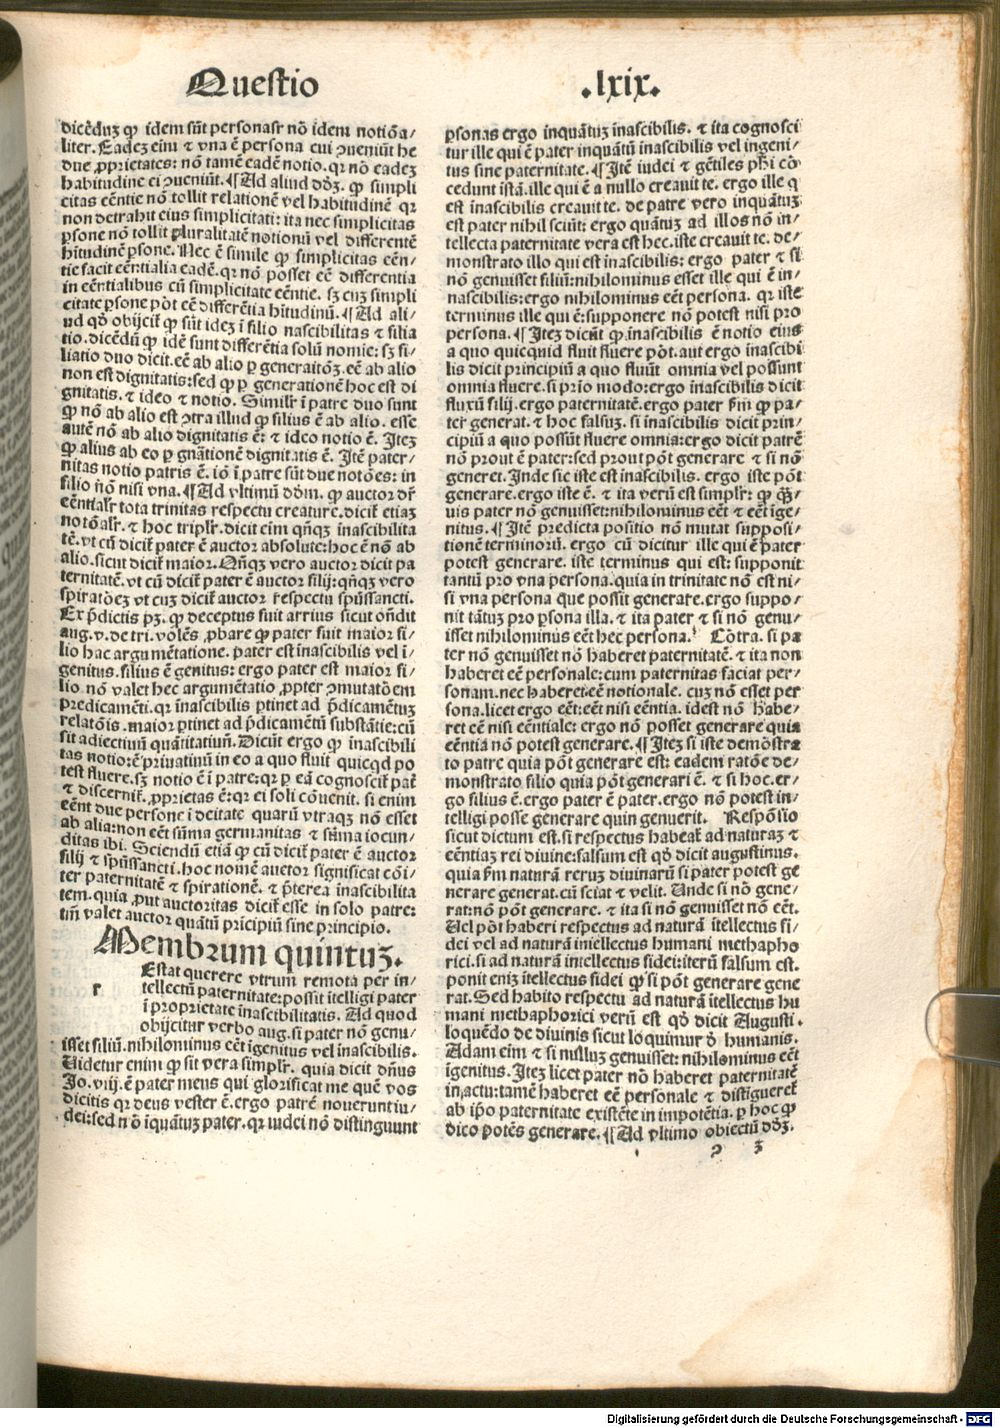 Questio .lxix.
dicēduʒ qp idem sūt personasr nō idem notiōa/
liter. Eadeʒ eim ⁊ vna ē persona cui ꝯueniūt he
due ꝓprietates: nō tamē eadē notio. qꝛ nō eadeʒ
habitudine ei ꝯueniūt. ¶ Ad aliud dōʒ. qp simpli
citas eēntie nō tollit relationē vel habitudinē qꝛ
non detrahit eius simplicitati: ita nec simplicitas
ꝑsone nō tollit pluralitatē notionū vel differentē
hitudinē ꝑsone. Nec ē simile qp simplicitas eēn/
tie facit eēntialia eadē. qꝛ nō posset eē differentia
in eēntialibus cū simplicitate eēntie. sʒ cuʒ simpli
citate ꝑsone pōt eē differētia hitudinū. ¶ Ad ali/
ud qō obijcit̄ qp sūt ideʒ ī filio nascibilitas ⁊ filia
tio. dicēdū qp idē sunt differētia solū nomie: sʒ fi/
liatio duo dicit. eē ab alio ꝑ generaitōʒ. eē ab alio
non est dignitatis: sed qp ꝑ generationē hoc est di
gnitatis. ⁊ ideo ⁊ notio. Similr̄ ī patre duo sunt
qp nō ab alio est ꝯtra illud qp filius ē ab alio. esse
autē nō ab alio dignitatis ē: ⁊ ideo notio ē. Iteʒ
qp alius ab eo ꝑ gnātionē dignitatis ē. Itē pater/
nitas notio patris ē. iō ī patre sūt due notōes: in
filio nō nisi vna. ¶ Ad vltimū dōm. qp auctor dr̄
eēntialr̄ tota trinitas respectu creature. dicit̄ etiaʒ
notōalr̄. ⁊ hoc triplr̄. dicit eim qn̄qʒ inascibilita
tē. vt cū dicit̄ pater ē auctor absolute: hoc ē nō ab
alio. sicut dicit̄ maior. Qn̄qʒ vero auctor dicit pa
ternitatē. vt cū dicit̄ pater ē auctor filij: qn̄qʒ vero
spiratōeʒ vt cuʒ dicit̄ auctor respectu spūssancti.
Ex p̄dictis pʒ. qp deceptus fuit arrius sicut on̄dit
aug. v. de tri. volēs ꝓbare qp pater fuit maior fi/
lio hac argumētatione. pater est inascibilis vel ī/
genitus. filius ē genitus: ergo pater est maior fi/
lio. nō valet hec argumētatio ꝓpter ꝯmutatōem
predicamēti. qꝛ inascibilis ꝑtinet ad p̄dicamētuʒ
relatōis. maior ꝑtinet ad p̄dicamētū substātie: cū
sit adiectiuū quātitatiuū. Dicūt ergo qp inascibili
tas notio: ē priuatiuū in eo a quo fluit quicqd po
test fluere. sʒ notio ē ī patre: qꝛ ꝑ eā cognoscit̄ pat̄
⁊ discernit̄. ꝓprietas ē: qꝛ ei soli cōuenit. si enim
eēnt due persone ī deitate quarū vtraqʒ nō esset
ab alia: non eēt sūma germanitas ⁊ sūma iocun/
ditas ibi. Sciendū etiā qp cū dicit̄ pater ē auctor
filij ⁊ spūssancti. hoc nomē auctor significat cōi/
ter paternitatē ⁊ spirationē. ⁊ p̄terea inascibilita
tem. quia ꝓut auctoritas dicit̄ esse in solo patre:
tm̄ valet auctor quātū prīcipiū sine principio.
Membrum quintuʒ.
r Estat querere vtrum remota per in/
tellectū paternitate: possit itelligi pater
ī proprietate inascibilitatis. Ad quod
obijcitur verbo aug. si pater nō genu/
isset filiū. nihilominus eēt īgenitus vel inascibilis.
Uidetur enim qp sit vera simplr̄. quia dicit dn̄us
Jo. viij. ē pater meus qui glorificat me quē vos
dicitis qꝛ deus vester ē. ergo patrē nouerunt iu/
dei: sed nō īquātuʒ pater. qꝛ iudei nō distinguunt
ꝑsonas ergo inquātuʒ inascibilis. ⁊ ita cognosci
tur ille qui ē pater inquātū inascibilis vel ingeni/
tus sine paternitate. ¶ Itē iudei ⁊ gētiles phi cō
cedunt istā. ille qui ē a nullo creauit te. ergo ille q
est inascibilis creauit te. de patre vero inquātuʒ
est pater nihil sciūt: ergo quātuʒ ad illos nō in/
tellecta paternitate vera est hec. iste creauit te. de/
monstrato illo qui est inascibilis: ergo pater ⁊ si
nō genuisset filiū: nihilominus esset ille qui ē in/
nascibilis: ergo nihilominus eēt persona. qꝛ iste
terminus ille qui ē: supponere nō potest nisi pro
persona. ¶ Iteʒ dicūt qp inascibilis ē notio eius
a quo quicquid fluit fluere pōt. aut ergo inascibi
lis dicit principiū a quo fluūt omnia vel possunt
omnia fluere. si prīo modo: ergo inascibilis dicit
fluxū filij. ergo paternitatē. ergo pater fm̄ qp pa/
ter generat. ⁊ hoc falsuʒ. si inascibilis dicit prin/
cipiū a quo possūt fluere omnia: ergo dicit patrē
nō prout ē pater: sed prout pōt generare ⁊ si nō
generet. Inde sic iste est inascibilis. ergo iste pōt
generare. ergo iste ē. ⁊ ita verū est simplr̄: qp qʒ/
uis pater nō genuisset: nihilominus eēt ⁊ eēt ige/
nitus. ¶ Itē predicta positio nō mutat supposi/
tionē terminorū. ergo cū dicitur ille qui ē pater
potest generare. iste terminus qui est: supponit
tantū pro vna persona. quia in trinitate nō est ni/
si vna persona que possit generare. ergo suppo/
nit tātuʒ pro ꝑsona illa. ⁊ ita pater ⁊ si nō genu/
isset nihilominus eēt hec persona. Cōtra. si pa
ter nō genuisset nō haberet paternitatē. ⁊ ita non
haberet eē personale: cum paternitas faciat per/
sonam. nec haberet eē notionale. cuʒ nō esset per
sona. licet ergo eēt: eēt nisi eēntia. idest nō habe/
ret eē nisi eēntiale: ergo nō posset generare quia
eēntia nō potest generare. ¶ Iteʒ si iste demōstra
to patre quia pōt generare est: eadem ratōe de/
monstrato filio quia pōt generari ē. ⁊ si hoc. er/
go filius ē. ergo pater ē pater. ergo nō potest in/
telligi posse generare quin genuerit. Respōsio
sicut dictum est. si respectus habeat̄ ad naturaʒ ⁊
eēntiaʒ rei diuine: falsum est qō dicit augustinus.
quia fm̄ naturā reruʒ diuinarū si pater potest ge
nerare generat. cū sciat ⁊ velit. Unde si nō gene/
rat: nō pōt generare. ⁊ ita si nō genuisset nō eēt.
Uel pōt haberi respectus ad naturā itellectus fi/
dei vel ad naturā intellectus humani methapho
rici. si ad naturā intellectus fidei: iterū falsum est.
ponit eniʒ itellectus fidei qp si pōt generare gene
rat. Sed habito respectu ad naturā itellectus hu
mani methaphorici verū est qō dicit Augusti.
loquēdo de diuinis sicut loquimur d̄ humanis.
Adam eim ⁊ si nullus genuisset: nihilominus eēt
igenitus. Iteʒ licet pater nō haberet paternitatē
in actu: tamē haberet eē personale ⁊ distīgueret̄
ab ip̄o paternitate existēte in impotētia. ꝑ hoc qp
dico potēs generare. ¶ Ad vltimo obiectū dōʒ.